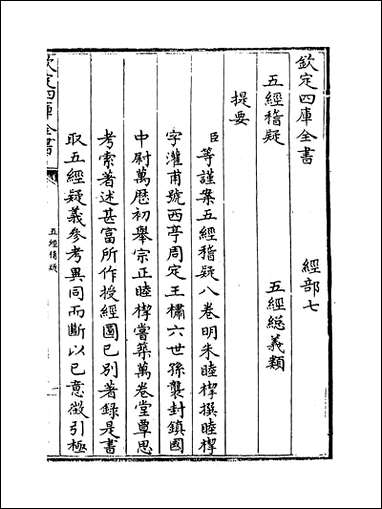 欽定四庫全書　經部七
五經稽疑　五經總義類
提要
臣等謹案五經稽疑八卷明朱睦㮮撰睦㮮
字灌甫號西亭周定王橚六世孫襲封鎮國
中尉萬厯初舉宗正睦㮮嘗築萬卷堂覃思
考索著述甚富所作授經圖已别著録是書
取五經疑義參考異同而斷以已意徵引極
欽定四庫全書
五經稽疑